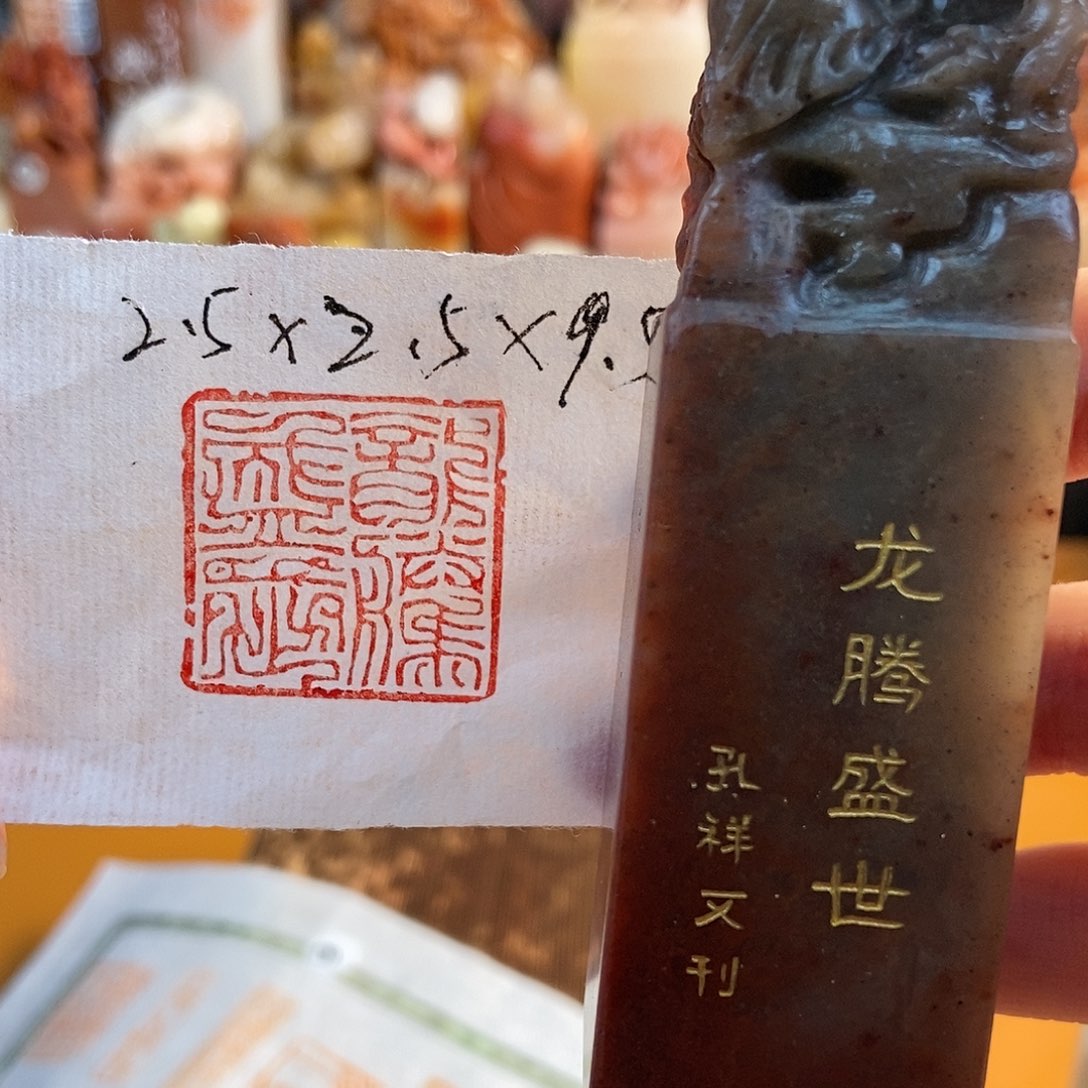 2.5×2.5×9.5
龙腾盛世
孔祥文刊